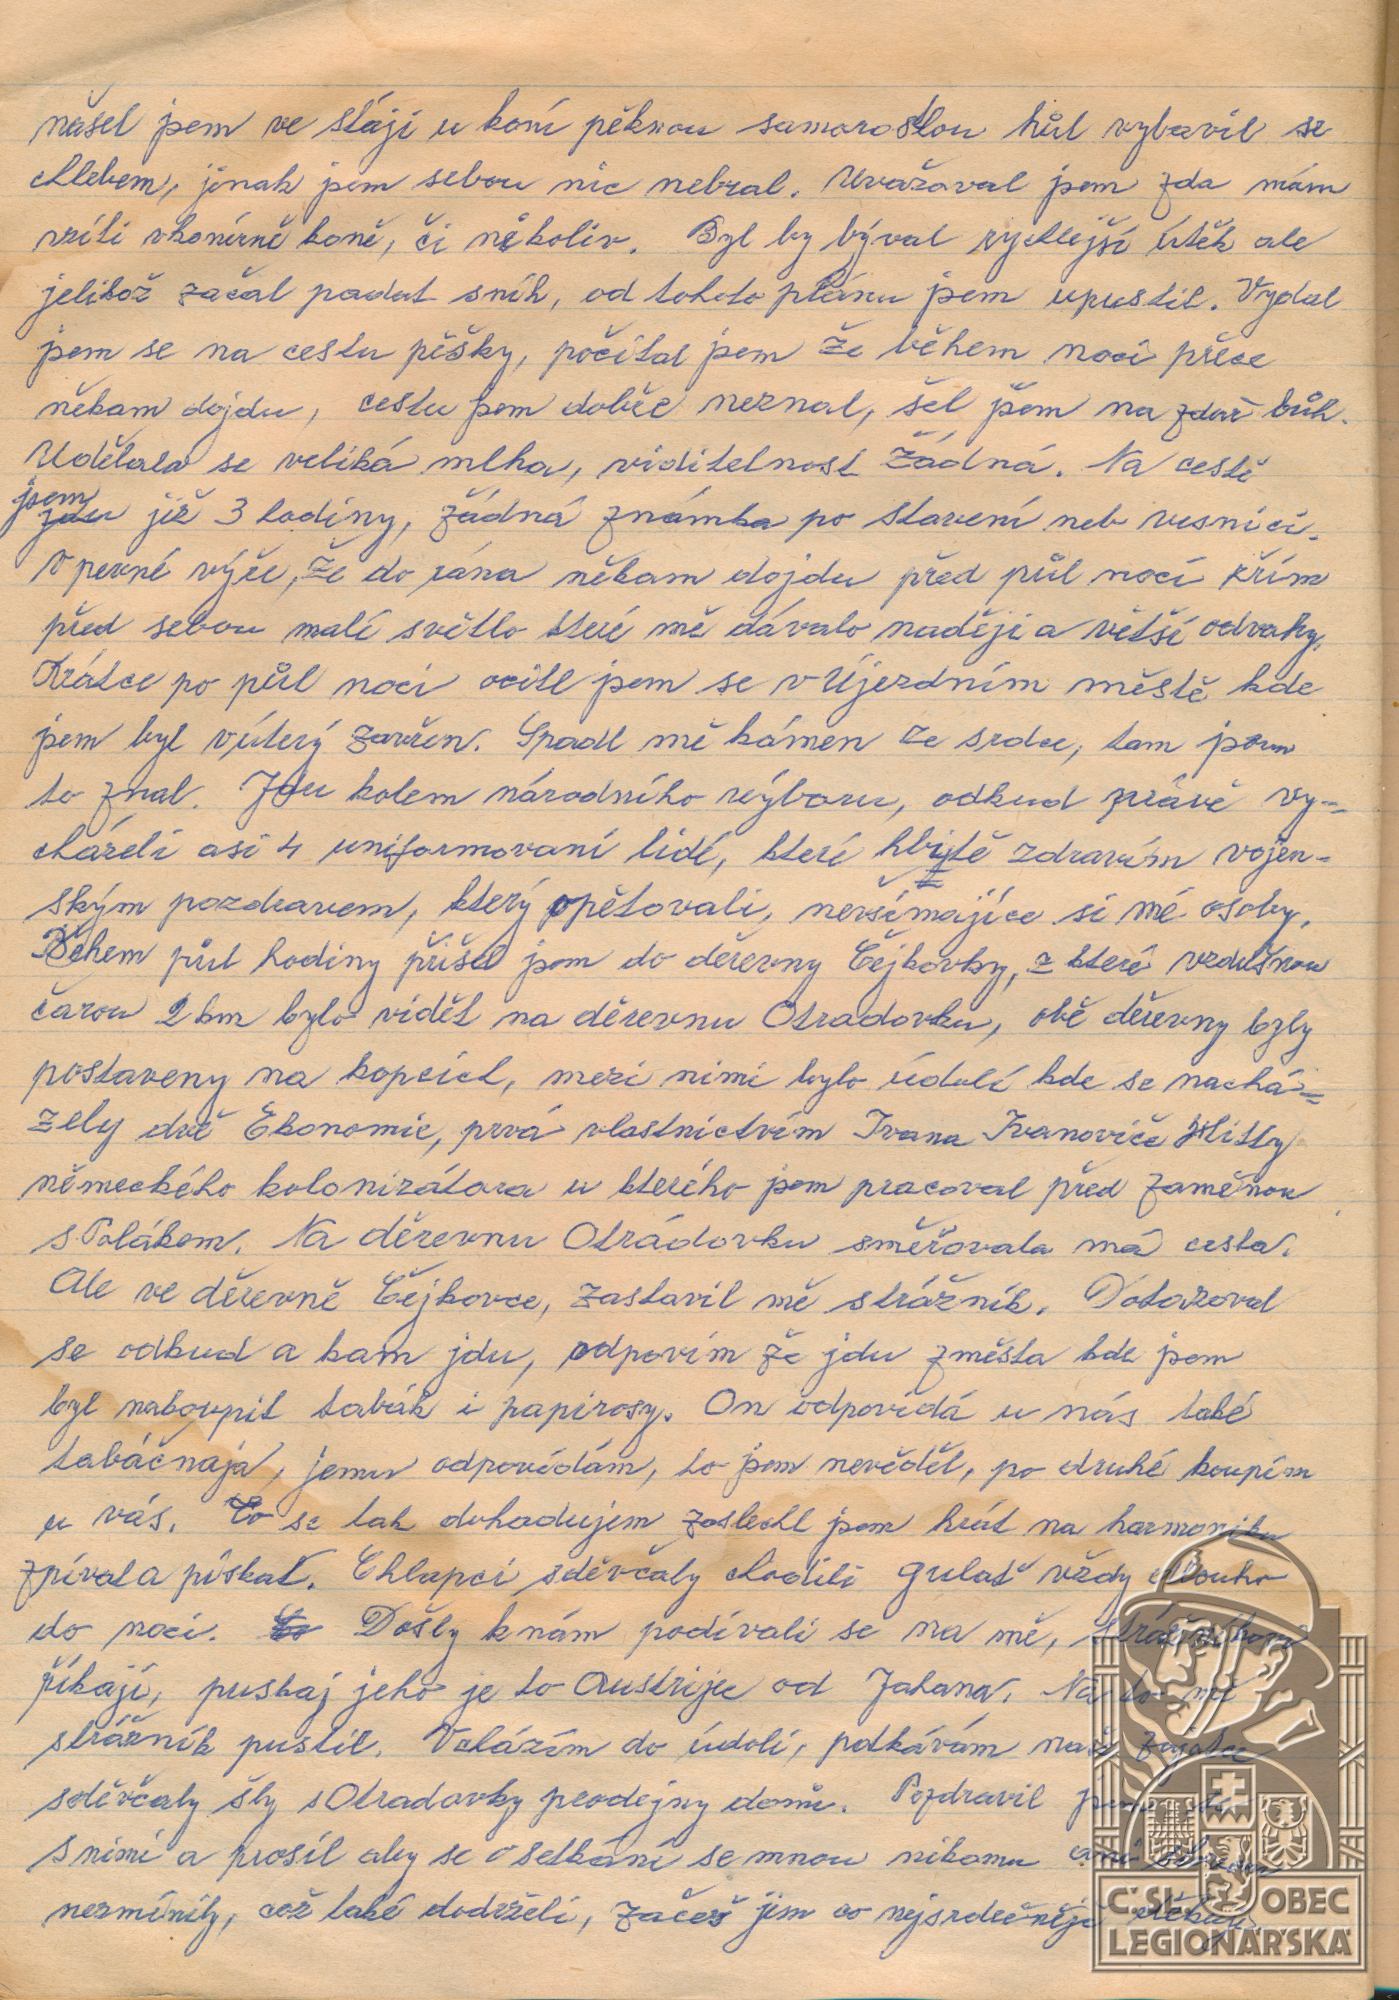 našel jsem ve stáji u koní pěknou samorostlou hůl vybavil se
chlebem, jinak jsem sebou nic nebral. Uvažoval jsem zda mám
vzíti vkonírně koně, či nikoliv. Byl by býval rychlejší útěk ale
jelikož začal padat sníh, od tohoto plánu jsem upustil. Vydal
jsem se na cestu pěšky, počítal jsem že během noci přece
někam dojdu, cestu jsem dobře neznal, šel jsem na zdař bůh.
Udělala se veliká mlha, viditelnost žádná. Na cestě
jsem již 3 hodiny, žádná známka po stavení neb vesnici.
V pevné výře, že do rána někam dojdu před půl nocí zřím
před sebou malí světlo které mě dávalo naději a větší odvahy.
Krátce po půl noci ocitl jsem se v Újezdním městě kde
jsem byl vúterý zavřen. Spadl mě kámen ze srdce, tam jsem
to znal. Jdu kolem národního výboru, odkud právě vy-
cházeli asi 4 uniformovaní lidí, které hbytě zdravím vojen-
ským pozdravem, který opětovali, nevšímajíce si mé osoby.
Během půl hodiny přišel jsem do děrevny Čejkovky, z které vzdušnou
čarou 2 km bylo vidět na děrevnu Otradovku, obě děrevny byly
postaveny na kopcích, mezi nimi bylo údolí kde se nachá-
zely dvě Ekonomie, prvá vlastnictvím Ivana Ivanoviče
německého kolonizátora u kterého jsem pracoval před zaměnou
s Polákem. Na děrevnu Otrádovku směřovala má cesta.
Ale ve děrevně Čejkovce, zastavil mě strážník. Dotazoval
se odkud a kam jdu, odpovím že jdu změsta kde jsem
byl nakoupit tabák i papirosy. On odpovídá u nás také
tabáčnaja, jemu odpovídám, to jsem nevěděl, po druhé koupím
u vás. Co se tak dohadujem zaslechl jsem hrát na harmoniku
zpívat a pískat. Chlapci sděvčaty chodili gulať vždy dlouho
do noci. Došly knám podívali se na mě, strážníkovi
říkají, puskaj jeho je to Austrijec od Jahana. Na to mě
strážník pustil. Vcházím do údolí, potkávám naše zajatce
sděvčaty šly sOtradovky prodejny domů. Pozdravil jsem se
snimi a prosil aby se o setkání semnou nikomu ani slovem
nezmínily, což také dodrželi, začež jim co nejsrdečněji děkuji.
C.SL. OBEC
LEGIONÁŘSKÁ